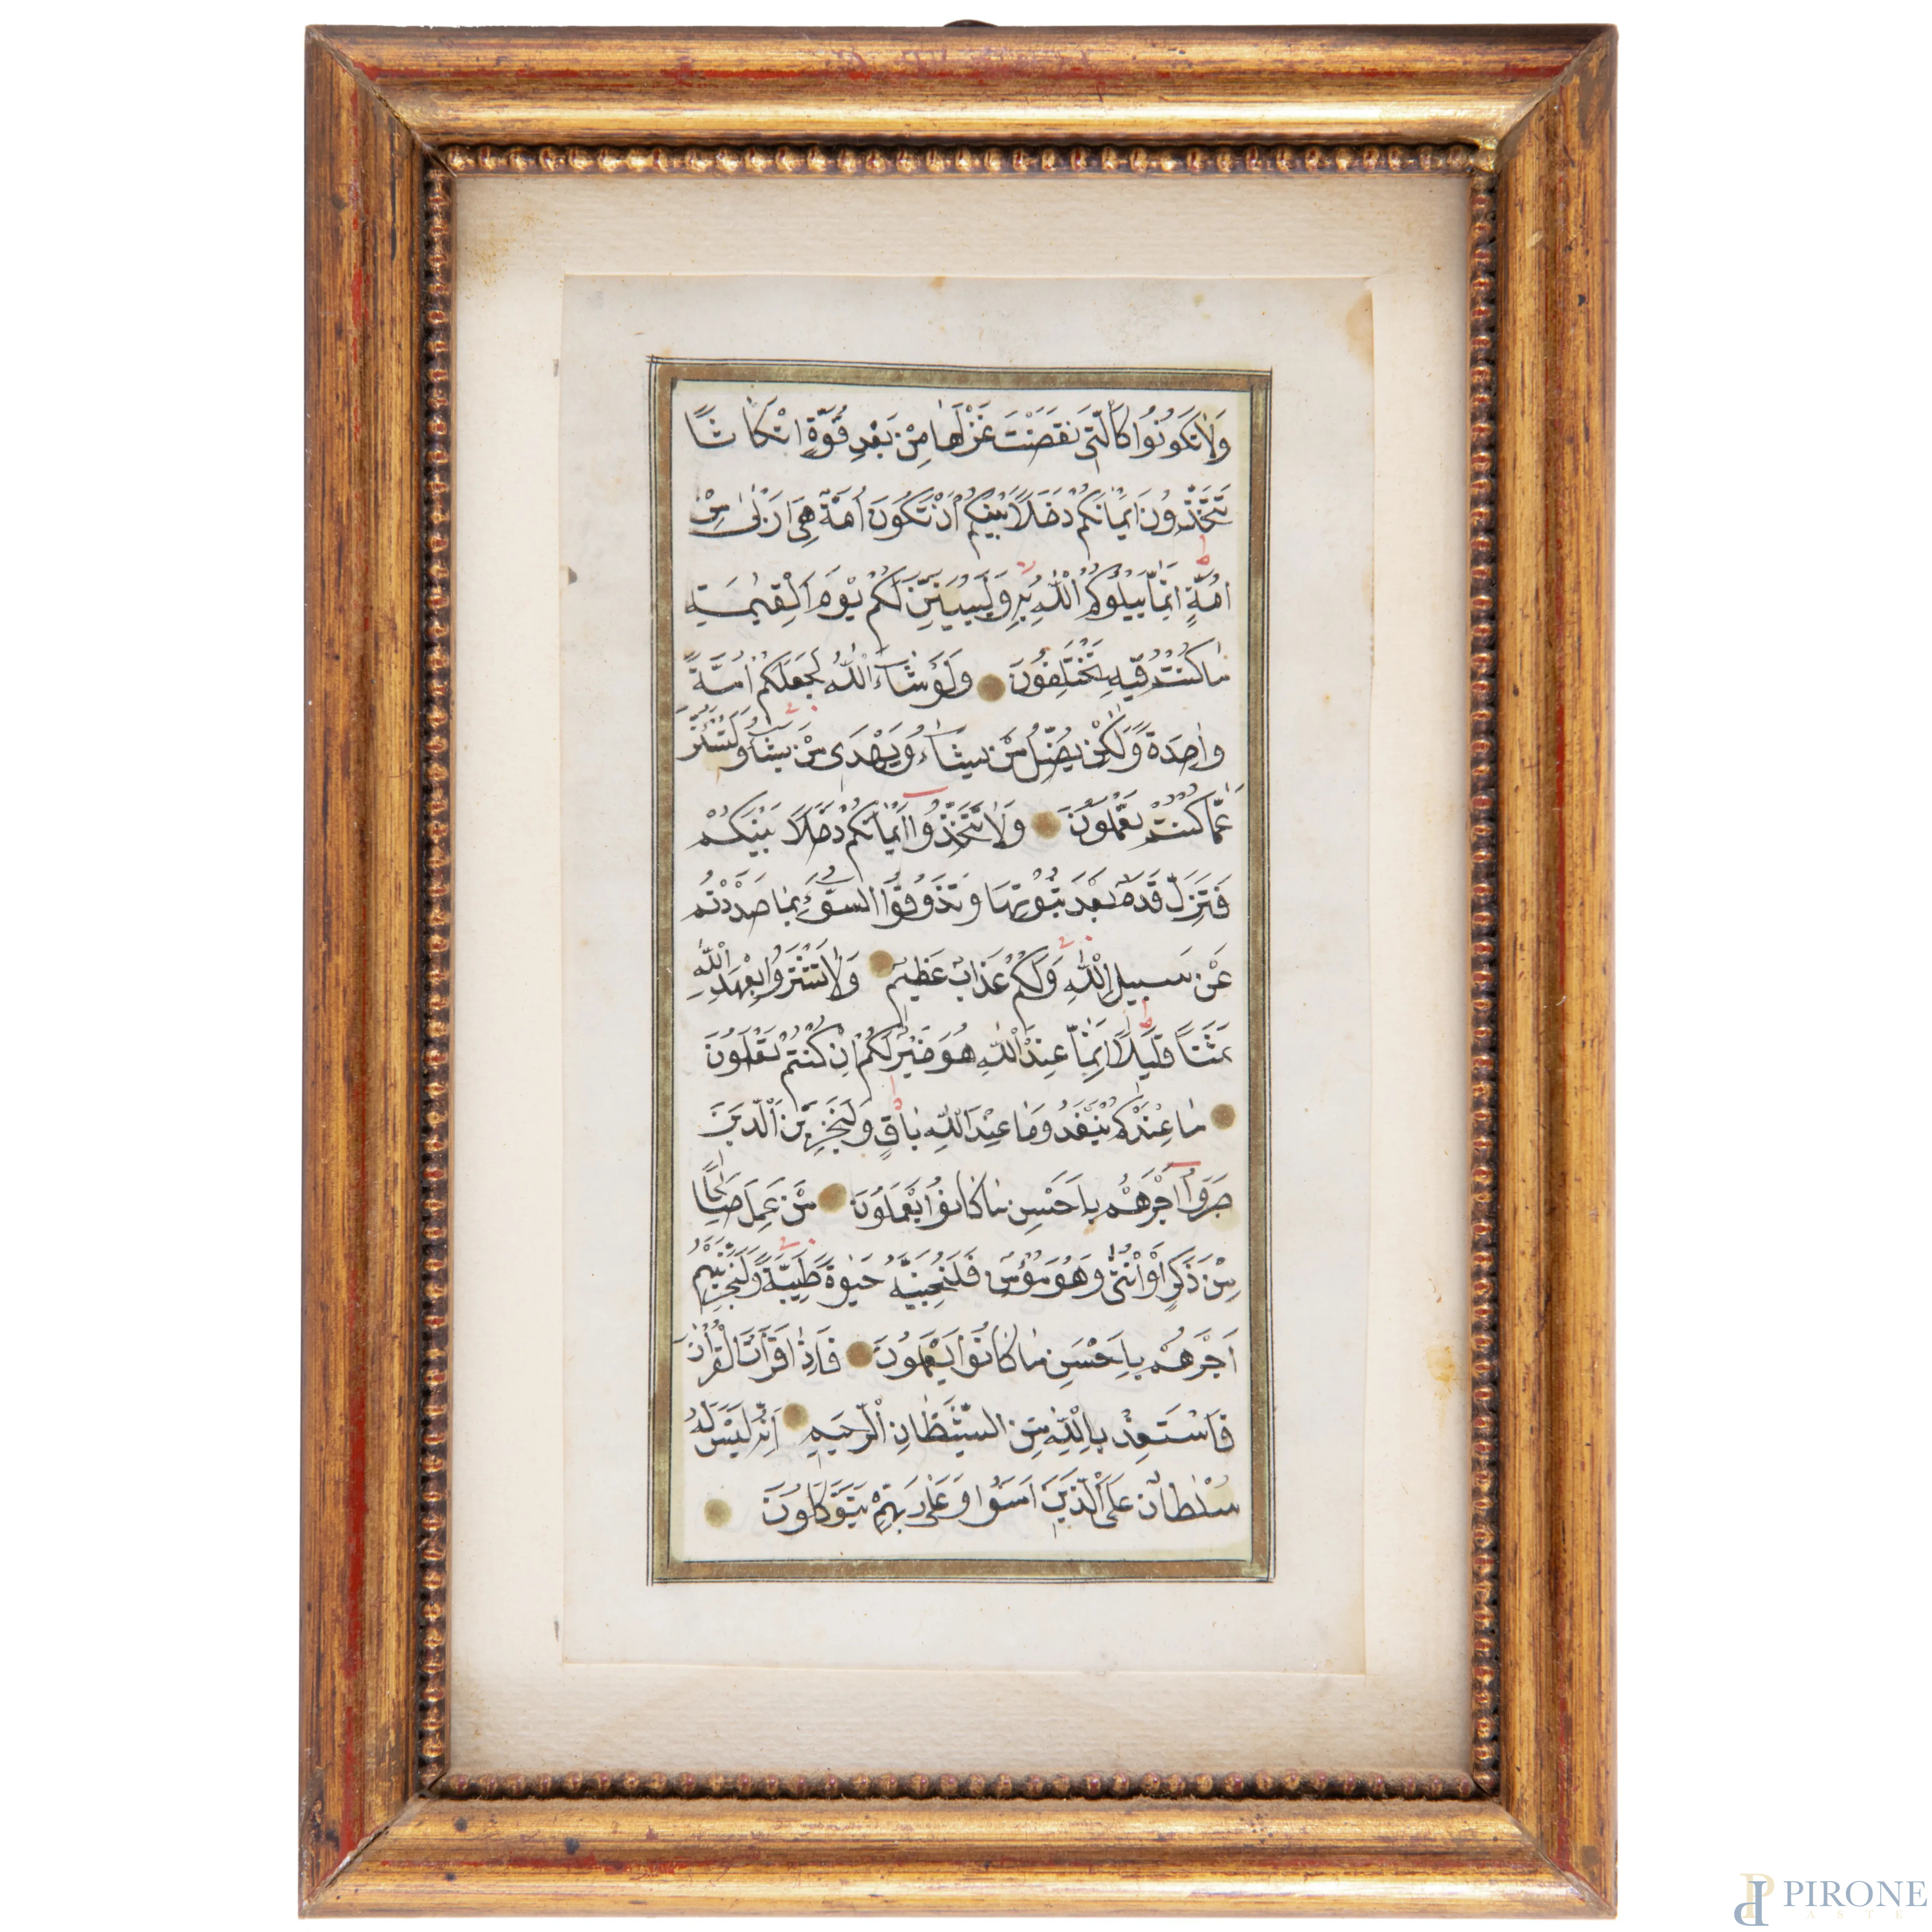 وَلَا تَكُونُوا كَالَّتِي نَقَضَتْ غَزْلَهَا مِنْ بَعْدِ قُوَّةٍ اَنْكَاثًا
تَتَّخِذُونَ اَيْمَانَكُمْ دَخَلًا بَيْنَكُمْ اَنْ تَكُونَ اُمَّةٌ هِيَ اَرْبٰى مِنْ
اُمَّةٍ اِنَّمَا يَبْلُوكُمُ اللّٰهُ بِهِ وَلَيُبَيِّنَنَّ لَكُمْ يَوْمَ الْقِيٰمَةِ
مَا كُنْتُمْ فِيهِ تَخْتَلِفُونَ وَلَوْ شَاءَ اللّٰهُ لَجَعَلَكُمْ اُمَّةً
وَاحِدَةً وَلٰكِنْ يُضِلُّ مَنْ يَشَاءُ وَيَهْدِى مَنْ يَشَاءُ وَلَتُسْئَلُنَّ
عَمَّا كُنْتُمْ تَعْمَلُونَ وَلَا تَتَّخِذُوا اَيْمَانَكُمْ دَخَلًا بَيْنَكُمْ
فَتَزِلَّ قَدَمٌ بَعْدَ ثُبُوتِهَا وَتَذُوقُوا السُّوءَ بِمَا صَدَدْتُمْ
عَنْ سَبِيلِ اللّٰهِ وَلَكُمْ عَذَابٌ عَظِيمٌ وَلَا تَشْتَرُوا بِعَهْدِ اللّٰهِ
ثَمَنًا قَلِيلًا اِنَّمَا عِنْدَ اللّٰهِ هُوَ خَيْرٌ لَكُمْ اِنْ كُنْتُمْ تَعْلَمُونَ
مَا عِنْدَكُمْ يَنْفَدُ وَمَا عِنْدَ اللّٰهِ بَاقٍ وَلَنَجْزِيَنَّ الَّذِينَ
صَبَرُوا اَجْرَهُمْ بِاَحْسَنِ مَا كَانُوا يَعْمَلُونَ مَنْ عَمِلَ صَالِحًا
مِنْ ذَكَرٍ اَوْ اُنْثٰى وَهُوَ مُؤْمِنٌ فَلَنُحْيِيَنَّهُ حَيٰوةً طَيِّبَةً وَلَنَجْزِيَنَّهُمْ
اَجْرَهُمْ بِاَحْسَنِ مَا كَانُوا يَعْمَلُونَ فَاِذَا قَرَأْتَ الْقُرْاٰنَ
فَاسْتَعِذْ بِاللّٰهِ مِنَ الشَّيْطَانِ الرَّجِيمِ اِنَّهُ لَيْسَ لَهُ
سُلْطَانٌ عَلَى الَّذِينَ اٰمَنُوا وَعَلٰى رَبِّهِمْ يَتَوَكَّلُونَ
PIRONE
ASTE